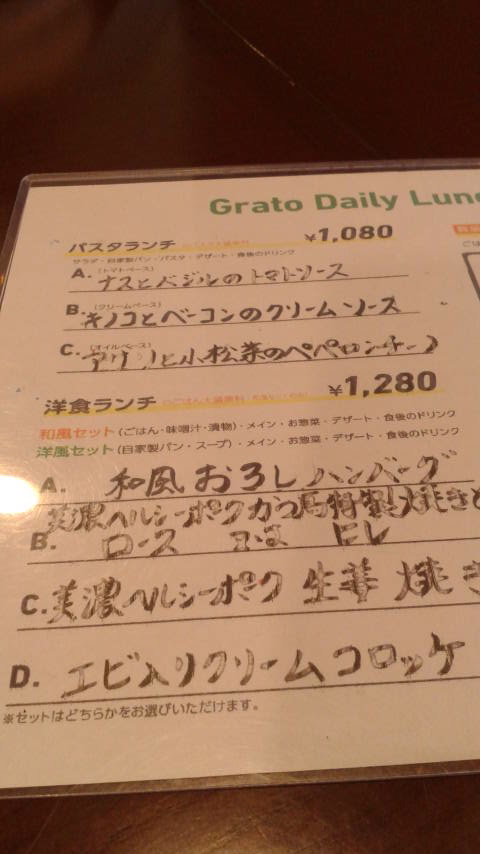 Grato Daily Lun
パスタランチ ¥1,080
サラダ・自家製パン・パスタ・デザート・食後のドリンク
A. (トマトベース) ナスとバジルのトマトソース
B. (クリームベース) キノコとベーコンのクリームソース
C. (オイルベース) アサリと小松菜のペペロンチーノ
洋食ランチ ¥1,280
和風セット (ごはん・味噌汁・漬物)・メイン・お惣菜・デザート・食後のドリンク
洋風セット (自家製パン・スープ)・メイン・お惣菜・デザート・食後のドリンク
A. 和風おろしハンバーグ
美濃ヘルシーポーク
B. ロース ヒレ
C. 美濃ヘルシーポーク 生姜焼き
D. エビ入りクリームコロッケ
※セットはどちらかをお選びいただけます。